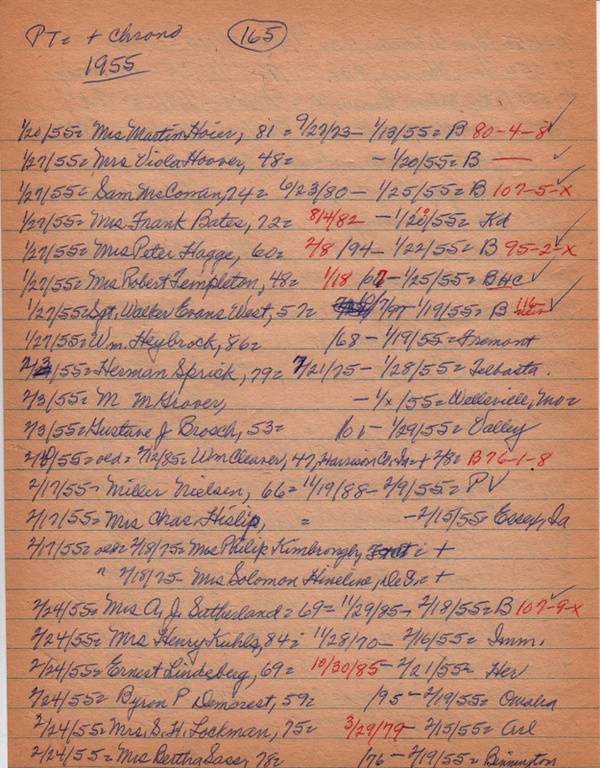 PT= + Chrono 165
1955
1/20/55= Mrs Martin Hoier, 81 = 9/27/73 - 1/13/55= B 80-4-8
1/27/55= Mrs Viola Hoover, 48= - 1/20/55= B —
1/27/55= Sam McComan, 74= 6/23/80 - 1/25/55= B 107-5-X
1/27/55= Mrs Frank Bates, 72= 8/4/82 - 1/20/55= Kd
1/27/55= Mrs Peter Hagge, 60= 2/8/94 - 1/22/55= B 95-2-X
1/27/55= Mrs Robert Templeton, 48= 1/18/67 - 1/25/55= BHC
1/27/55= Sgt. Walker Evans West, 57= /7/97 - 1/19/55= B 116-
1/27/55= Wm. Heybrock, 86= /68 - 1/19/55= Fremont
2/3/55= Herman Sprick, 79= 7/21/75 - 1/28/55= Telbasta.
2/3/55= M McGrover, - 1/x/55= Wellsville, Mo=
2/3/55= Gustave J Brosch, 53= /01 - 1/29/55= Valley
2/10/55= oed= 2/12/85= Wm Cleaver, 47, Harrison Co, Ia= + 2/8= B76-1-8
2/17/55= Miller Nielsen, 66= 11/19/88 - 2/9/55= PV
2/17/55= Mrs Chas. Hislip, = - 2/15/55= Essex, Ia
2/17/55= oed= 2/18/75= Mrs Philip Kimbrough, +
" 2/18/75- Mrs Solomon Hineline, DeSoto +
2/24/55= Mrs A. J. Sutherland= 69= 11/29/85 - 2/18/55= B 107-9-X
2/24/55= Mrs Henry Kuhls, 84= 11/28/70 - 2/16/55= Imm.
2/24/55= Ernest Lindeberg, 69= 10/30/85 - 2/21/55= Her
2/24/55= Byron P Demorest, 59= /95 - 2/19/55= Omaha
2/24/55= Mrs. S. H. Lockman, 75= 3/29/79 - 2/15/55= Arl
2/24/55= Mrs Bertha Sass, 78= /76 - 2/19/55= Bennington